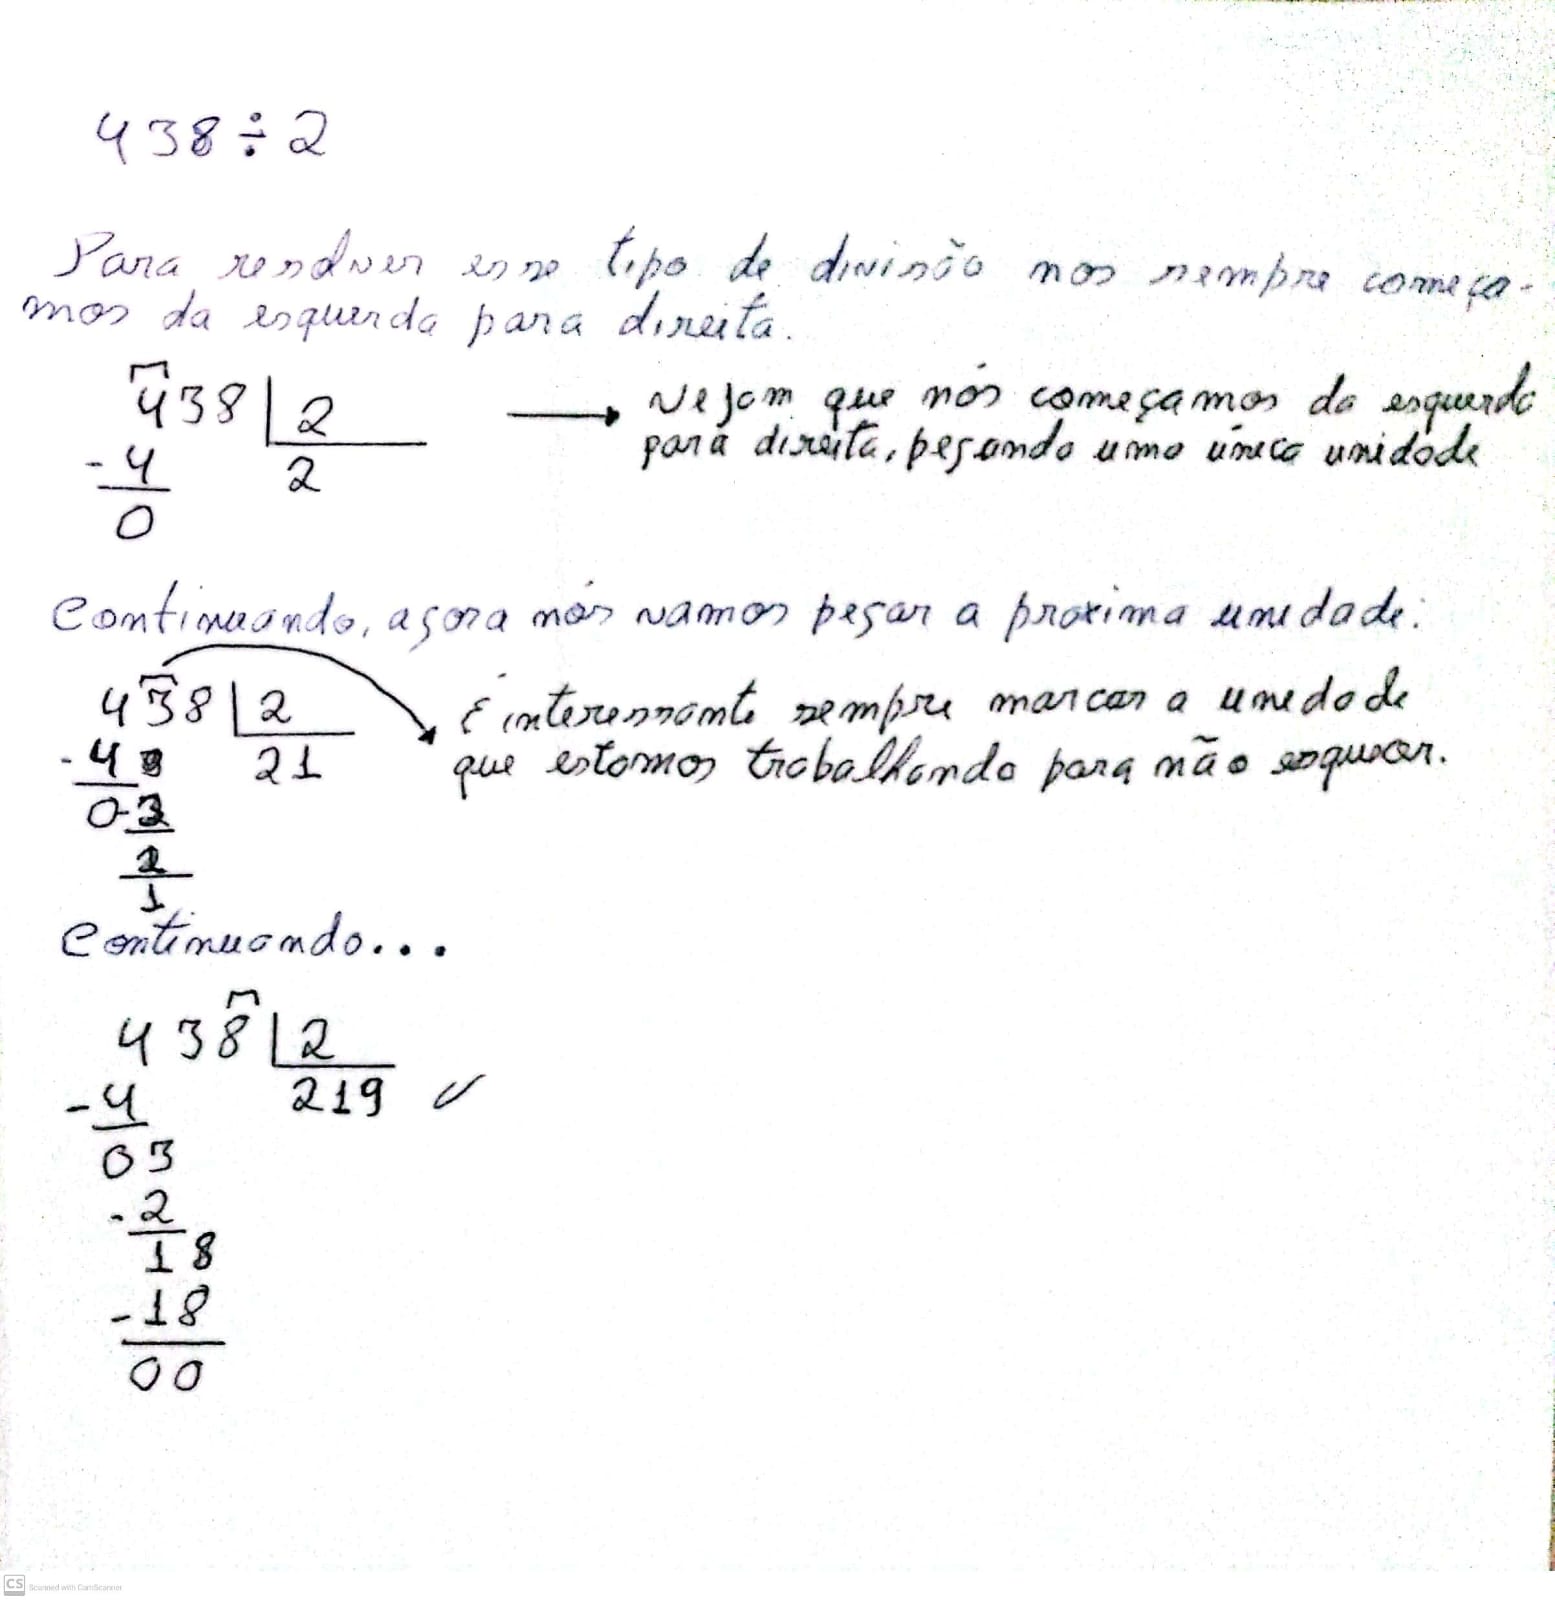 438 ÷ 2
Para resolver esse tipo de divisão nos sempre começa-
mos da esquerda para direita.
438 | 2 → Vejam que nós começamos da esquerda
- 4 2 para direita, pegando uma única unidade
0
Continuando, agora nós vamos pegar a proxima unidade:
438 | 2 É interessante sempre marcar a unidade
- 4 21 que estamos trabalhando para não esquecer.
0-3
2
1
Continuando...
438 | 2
- 4 219 ✓
03
- 2
18
- 18
00
CS Scanned with CamScanner